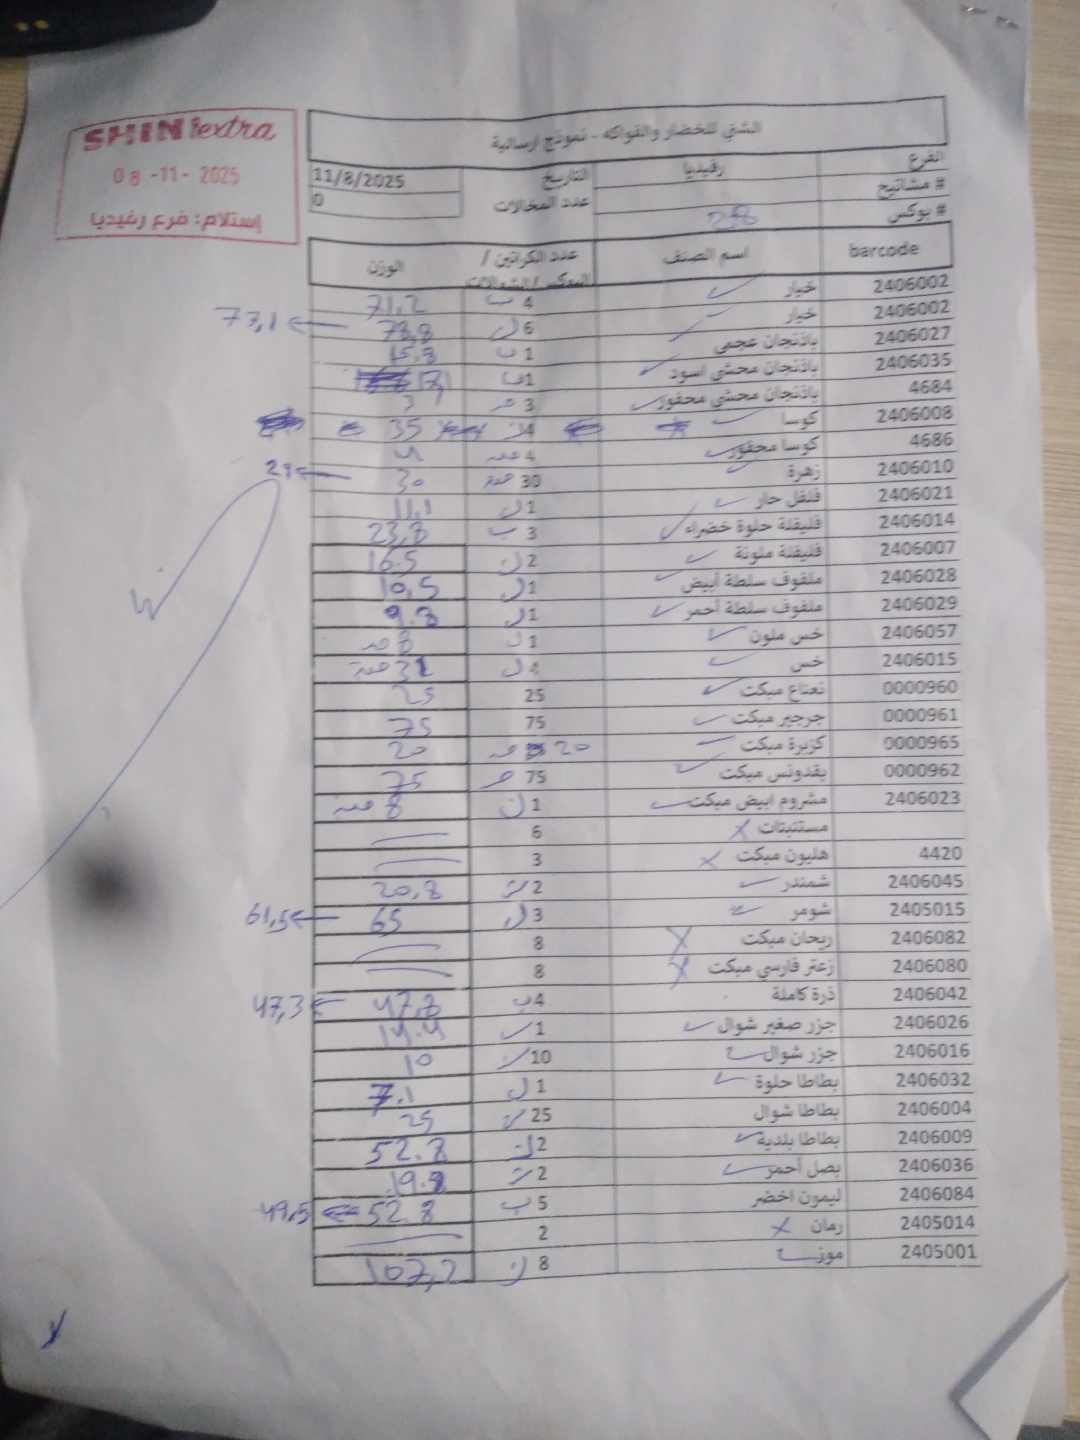 SHINI extra
08 -11- 2025
إستلام: فرع رفيديا
الشني للخضار والفواكه - نموذج ارسالية
الفرع رفيديا التاريخ 11/8/2025
# مشاتيح عدد المخالات 0
# بوكس 28
barcode اسم الصنف عدد الكراتين / البوكس / الشوالات الوزن
2406002 خيار 4 ب 71,2
2406002 خيار 6 78,8 ← 77,1
2406027 باذنجان عجمي 1 ب 15.8
2406035 باذنجان محشي اسود 1 ب 17,1
4684 باذنجان محشي محفور 3 3
2406008 كوسا 4 35
4686 كوسا محفور 4 4
2406010 زهرة 30 30 ← 29
2406021 فلفل حار 1 11,1
2406014 فليفلة حلوة خضراء 3 ب 23,8
2406007 فليفلة ملونة 2 16.5
2406028 ملفوف سلطة أبيض 1 10,5
2406029 ملفوف سلطة أحمر 1 9.8
2406057 خس ملون 1 8
2406015 خس 4
0000960 نعناع مبكت 25 25
0000961 جرجير مبكت 75 75
0000965 كزبرة مبكت 20 20
0000962 بقدونس مبكت 75 75
2406023 مشروم ابيض مبكت 1 8
مستنبتات 6
4420 هليون مبكت 3
2406045 شمندر 2 20,8
2405015 شومر 3 65 ← 61,5
2406082 ريحان مبكت 8
2406080 زعتر فارسي مبكت 8
2406042 ذرة كاملة 4 ب 47,8 ← 47,3
2406026 جزر صغير شوال 1 14.4
2406016 جزر شوال 10 10
2406032 بطاطا حلوة 1 7.1
2406004 بطاطا شوال 25 25
2406009 بطاطا بلدية 2 52.8
2406036 بصل أحمر 2 19.8
2406084 ليمون اخضر 5 ب 52.8 ← 49,5
2405014 رمان 2
2405001 موز 8 107,2